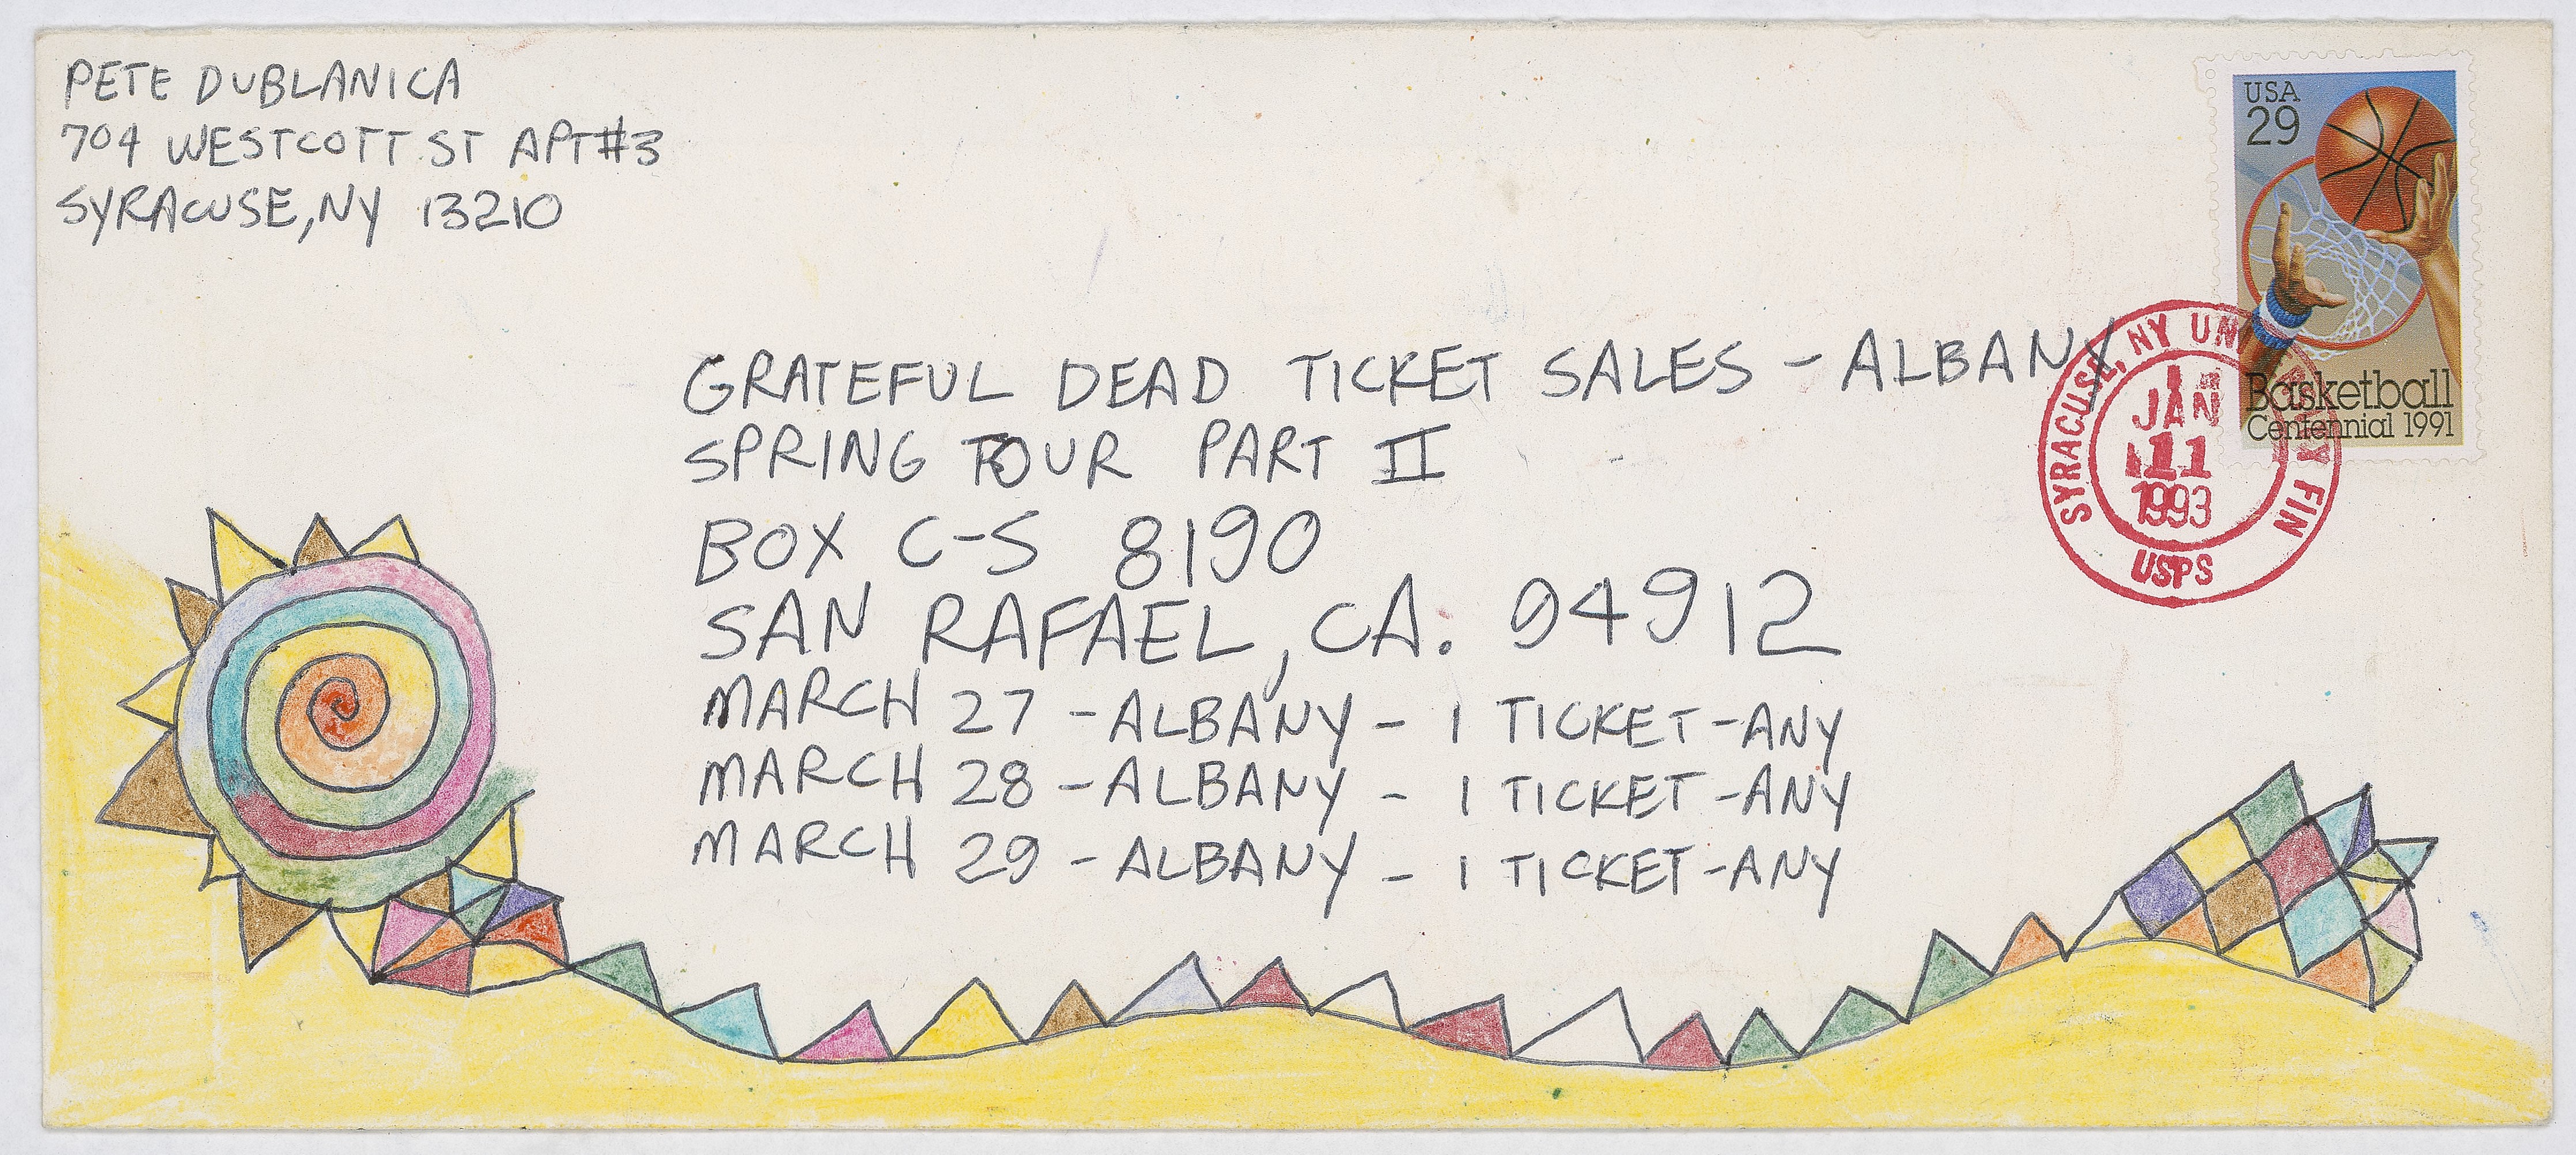 PETE DUBLANICA
704 WESTCOTT ST APT#3
SYRACUSE, NY 13210
USA
29
Basketball
Centennial 1991
SYRACUSE, NY UN FIN
JAN
11
1993
USPS
GRATEFUL DEAD TICKET SALES - ALBANY
SPRING TOUR PART II
BOX C-S 8190
SAN RAFAEL, CA. 94912
MARCH 27 - ALBANY - 1 TICKET - ANY
MARCH 28 - ALBANY - 1 TICKET - ANY
MARCH 29 - ALBANY - 1 TICKET - ANY